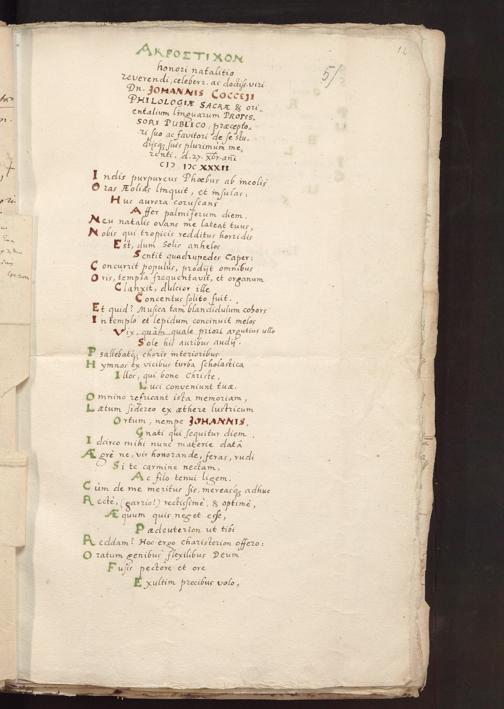 12
5/
AKPOSTIXON
honori natalitio
reverendi, celeberr. ac doctiss. viri
Dn. JOHANNIS COCCEJI
PHILOLOGIÆ SACRÆ & ori-
entalium linguarum PROFES-
SORI PUBLICO, præcepto-
ri suo ac favitori de se stu-
dijsq; suis plurimum me-
renti. d. 27. Xbr. añi
CIↃ IↃC XXXII
Indis purpureus Phœbus ab incolis
Oras Æolidis linquit, et insulas:
Hus aurora coruscans
Affer palmiferum diem.
Neu natalis ovans me lateat tuus,
Nobis qui tropicis redditus horridis
Est, dum Solis anhelos
Sentit quadrupedes Caper:
Concurrit populus, prodijt omnibus
Oris, templa frequentavit, et organum
Clanxit, dulcior ille
Concentus solito fuit.
Et quid? Musica tam blandidulum cohors
In templo et lepidum concinuit melos
Vix, quam quale priori argutius ullo
Sole his auribus audij.
Psallebatq; choris interioribus
Hymnos ex vicibus turba scholastica
Illos, qui bone Christe,
Luci conveniunt tuæ.
Omnino refricant ista memoriam,
Lætum sidereo ex æthere lustricum
Ortum, nempe JOHANNIS,
Gnati qui sequitur diem.
Idcirco mihi nunc materiæ datâ
Ægrè ne, vir honorande, feras, rudi
Si te carmine nectam,
Ac filo tenui ligem.
Cùm de me meritus sis, mereasq; adhuc
Rectè, (garrio!) rectissimè, & optimè,
Æquum quis neget esse,
Pædeuterion ut tibi
Reddam? Hoc ergo charisterion offero:
Oratum genibus flexilibus Deum
Fusis pectore et ore
Exultim precibus volo,